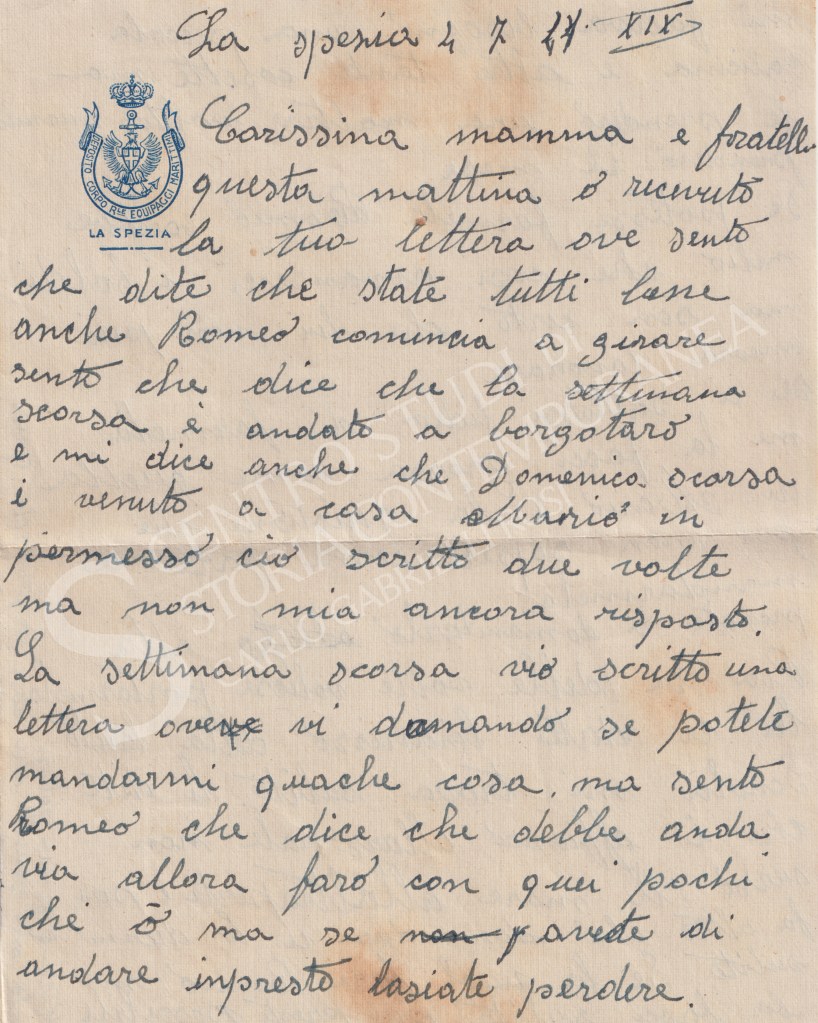 La spezia 4 7 41. XIX
DEPOSITO CORPO R.LE EQUIPAGGI MARITTIMI
LA SPEZIA
Carissina mamma e fratello
questa mattina ó ricevuto
la tua lettera ove sento
che dite che state tutti bene
anche Romeo comincia a girare
sento che dice che la settimana
scorsa è andato a borgotaro
e mi dice anche che Domenica scorsa
è venuto a casa Mario in
permesso ció scritto due volte
ma non mia ancora risposto.
La settimana scorsa vio scritto una
lettera ove vi domando se potete
mandarmi quache cosa, ma sento
Romeo che dice che debbe anda
via allora faró con quei pochi
che ó ma se non avete di
andare inpresto lasiate perdere.
CENTRO STUDI DI
STORIA CONTEMPORANEA
CARLO GABRIELLI ROSI